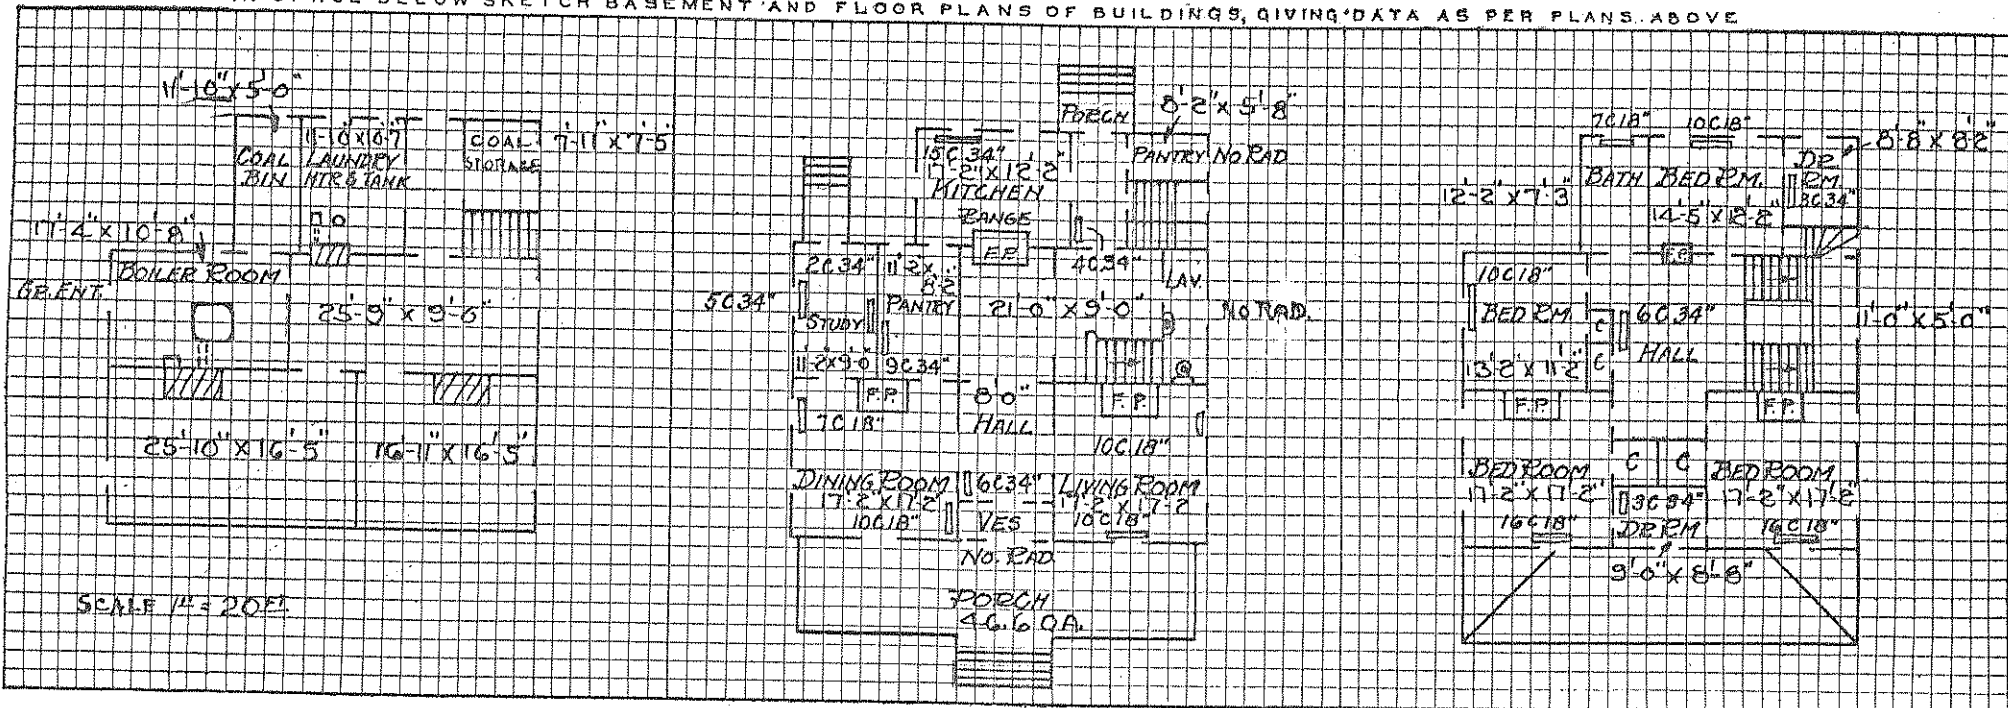 IN SPACE BELOW SKETCH BASEMENT AND FLOOR PLANS OF BUILDINGS, GIVING DATA AS PER PLANS ABOVE
11'-10" x 5'-0"
COAL
BIN
11-10 x 10-7
LAUNDRY
HTR & TANK
COAL
STORAGE
7'-11" x 7'-5"
17'-4" x 10'-8"
BOILER ROOM
GR. ENT.
25'-9" x 9'-6"
25'-10" x 16'-5"
16'-11" x 16'-5"
SCALE 1" = 20 FT.
PORCH
8'-2" x 5'-8"
15C 34"
17'-2" x 12'-2"
KITCHEN
RANGE
PANTRY NO RAD
F.P.
2C 34"
11'-2 x
8'-2"
PANTRY
4C 34"
LAV.
5C 34"
STUDY
21'-0" x 9'-0"
NO RAD.
11'-2 x 9'-0
9C 34"
F.P.
8'-0"
HALL
F.P.
7C 18"
10C 18"
DINING ROOM
17'-2" x 17'-2"
10C 18"
6C 34"
VES
NO. RAD
LIVING ROOM
17-2 x 17-2
10C 18"
PORCH
46.6 OA.
7C 18"
10C 18"
8'-8" x 8'-2"
BATH
BED RM.
DR.
RM.
3C 34"
12'-2" x 7'-3"
14'-5" x 12'-2"
F.P.
10C 18"
BED RM.
C
C
6C 34"
HALL
13'-2" x 11'-2"
F.P.
F.P.
BED ROOM
17-2" x 17-2"
16C 18"
C
C
3C 34"
DR RM
BED ROOM
17-2" x 17'-2"
16C 18"
9'-0" x 8'-8"